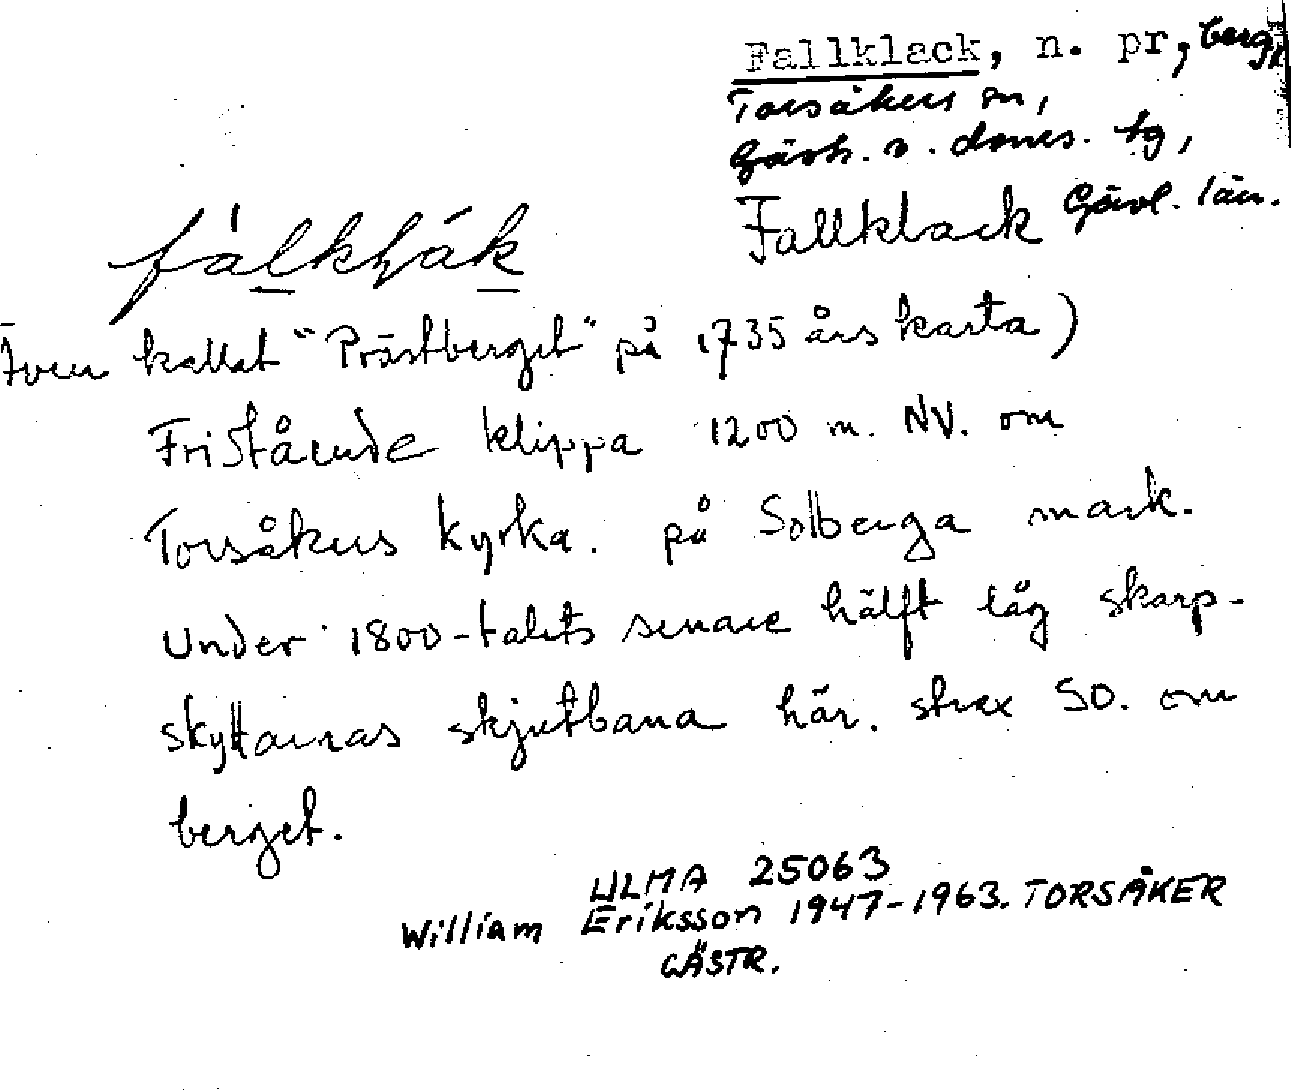 Fallklack, n. pr, berg,
Torsåkers sn,
Gävh. o. domes. tg,
Gävl. län.
Fallklack
Även kallat "Prästberget" på 1735 års karta)
Fristående klippa 1200 m. NV. om
Torsåkers kyrka. på Solberga mark.
Under 1800-talets senare hälft låg skarp-
skyttarnas skjutbana här. strax SO. om
berget.
ULMA 25063
William Eriksson 1947-1963. TORSÅKER
GÄSTR.